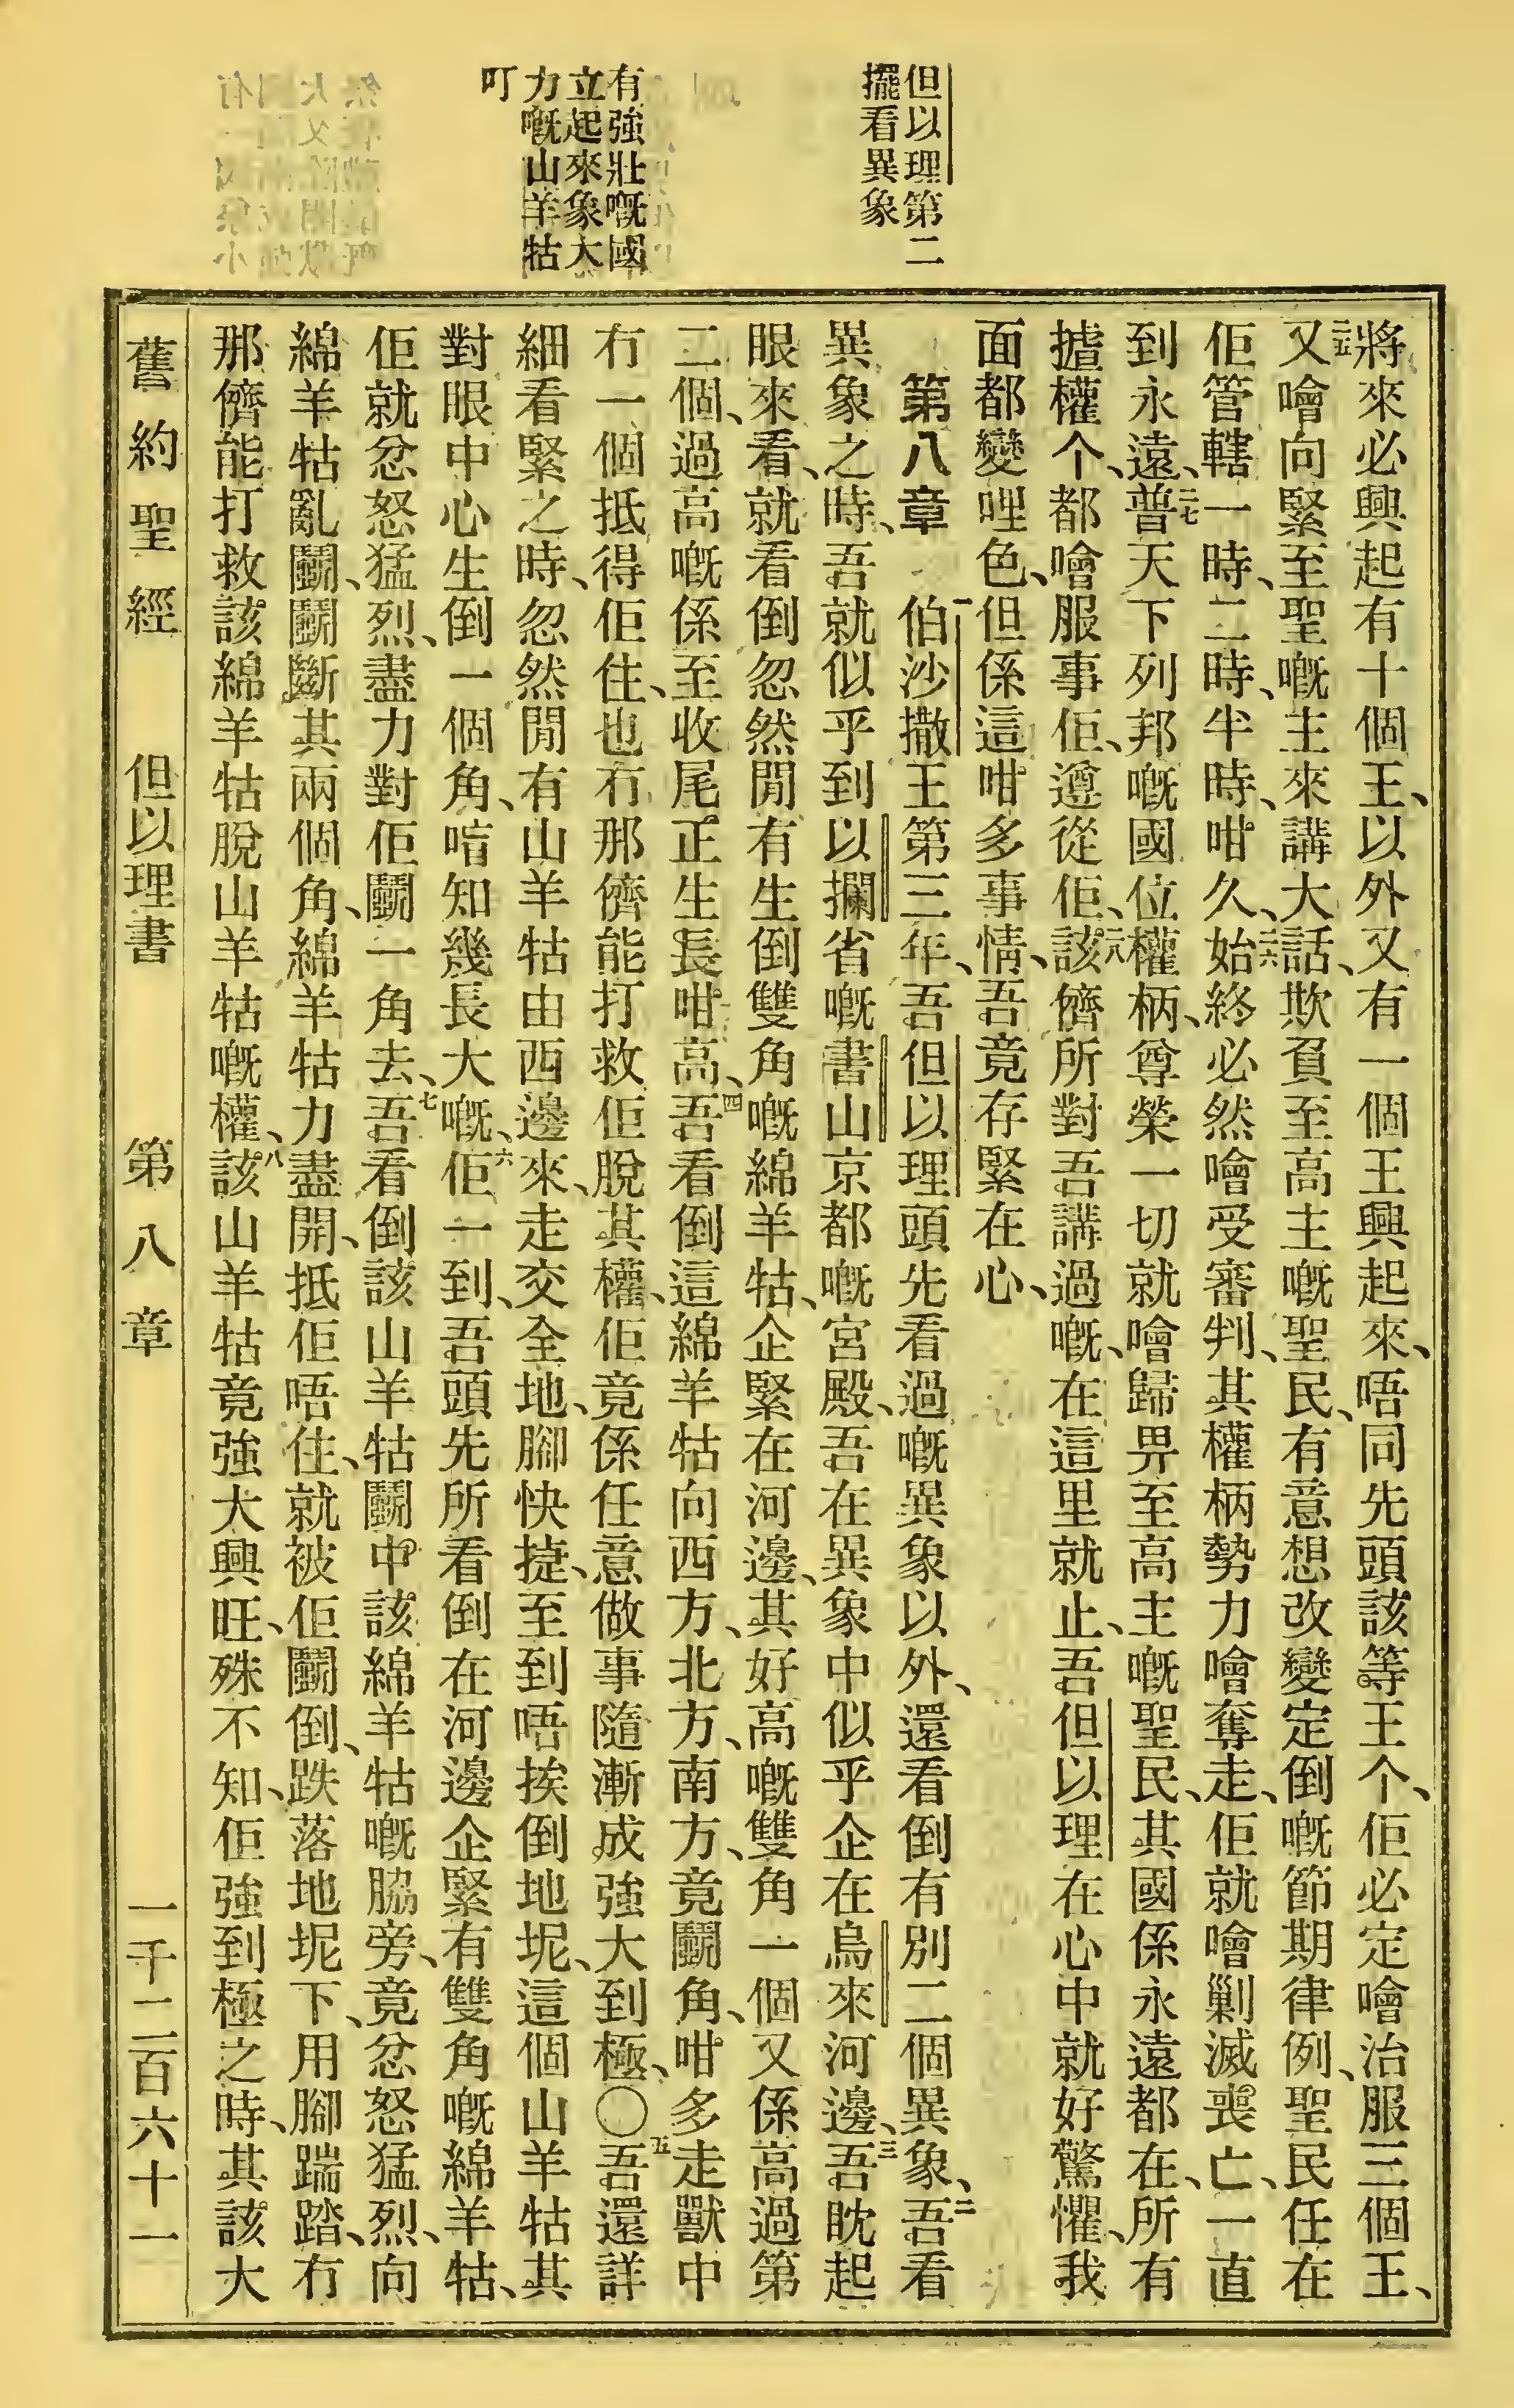 但以理第二
擺看異象
有強壯嘅國
立起來象大
力嘅山羊牯
叮
將來必興起有十個王、以外又有一個王興起來、唔同先頭該等王个、佢必定噲治服三個王、
二五又噲向緊至聖嘅主來講大話、欺負至高主嘅聖民、有意想改變定倒嘅節期律例、聖民任在
佢管轄一時、二時、半時、咁久、二六始終必然噲受審判、其權柄勢力噲奪走、佢就噲剿滅喪亡、一直
到永遠、二七普天下列邦嘅國位權柄、尊榮一切就噲歸畀至高主嘅聖民、其國係永遠都在、所有
揸權个、都噲服事佢、遵從佢、二八該儕所對吾講過嘅、在這里就止、吾但以理在心中就好驚懼、我
面都變哩色、但係這咁多事情、吾竟存緊在心、
第八章　一伯沙撒王第三年、吾但以理頭先看過嘅異象以外、還看倒有別二個異象、二吾看
異象之時、吾就似乎到以攔省嘅書山京都嘅宮殿、吾在異象中似乎企在烏來河邊、三吾眈起
眼來看、就看倒忽然閒有生倒雙角嘅綿羊牯、企緊在河邊、其好高嘅雙角一個又係高過第
二個、過高嘅係至收尾正生長咁高、四吾看倒這綿羊牯向西方、北方、南方、竟鬭角、咁多走獸中
冇一個抵得佢住、也冇那儕能打救佢脫其權、佢竟係任意做事隨漸成強大到極、〇五吾還詳
細看緊之時、忽然閒有山羊牯由西邊來、走交全地、腳快捷、至到唔挨倒地坭、這個山羊牯其
對眼中心生倒一個角、喑知幾長大嘅、六佢一到、吾頭先所看倒在河邊企緊有雙角嘅綿羊牯、
佢就忿怒猛烈、盡力對佢鬭一角去、七吾看倒該山羊牯鬭中該綿羊牯嘅脇旁、竟忿怒猛烈、向
綿羊牯亂鬭、鬭斷其兩個角、綿羊牯力盡開、抵佢唔住、就被佢鬭倒、跌落地坭下、用腳踹踏、冇
那儕能打救該綿羊牯脫山羊牯嘅權、八該山羊牯竟強大興旺、殊不知、佢強到極之時、其該大
舊約聖經　但以理書　第八章　一千二百六十一